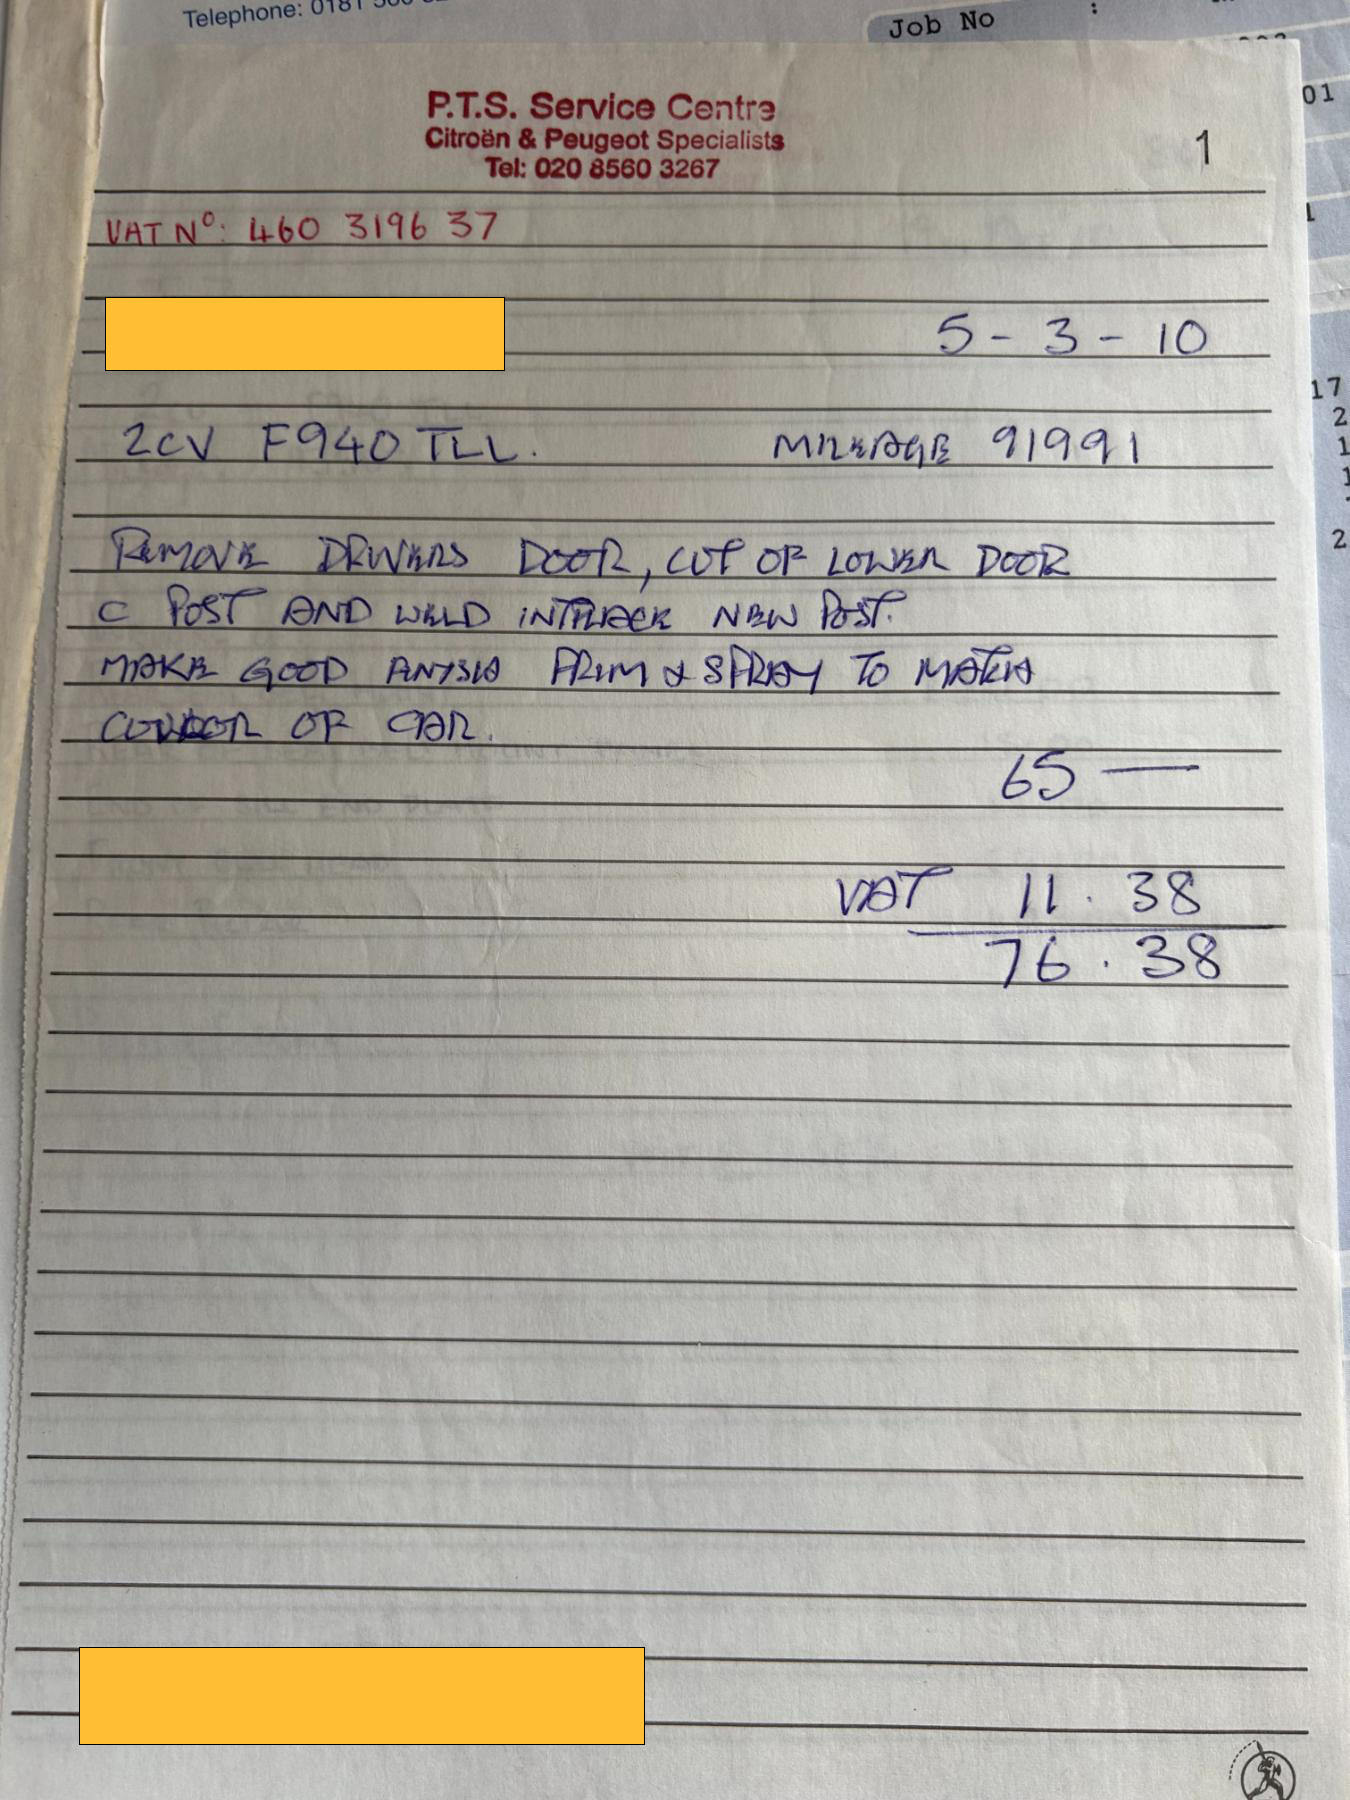 Telephone: 0181
Job No :
01
P.T.S. Service Centre
Citroën & Peugeot Specialists
Tel: 020 8560 3267
1
1
VAT Nº: 460 3196 37
5 - 3 - 10
17
2
2CV F940 TLL. MILEAGE 91991
1
1
2
REMOVE DRIVERS DOOR, CUT OF LOWER DOOR
C POST AND WELD INPLACE NEW POST.
MAKE GOOD FINISH PRIM & SPRAY TO MATCH
COLOOR OF CAR.
65 —
VAT 11 . 38
76 . 38